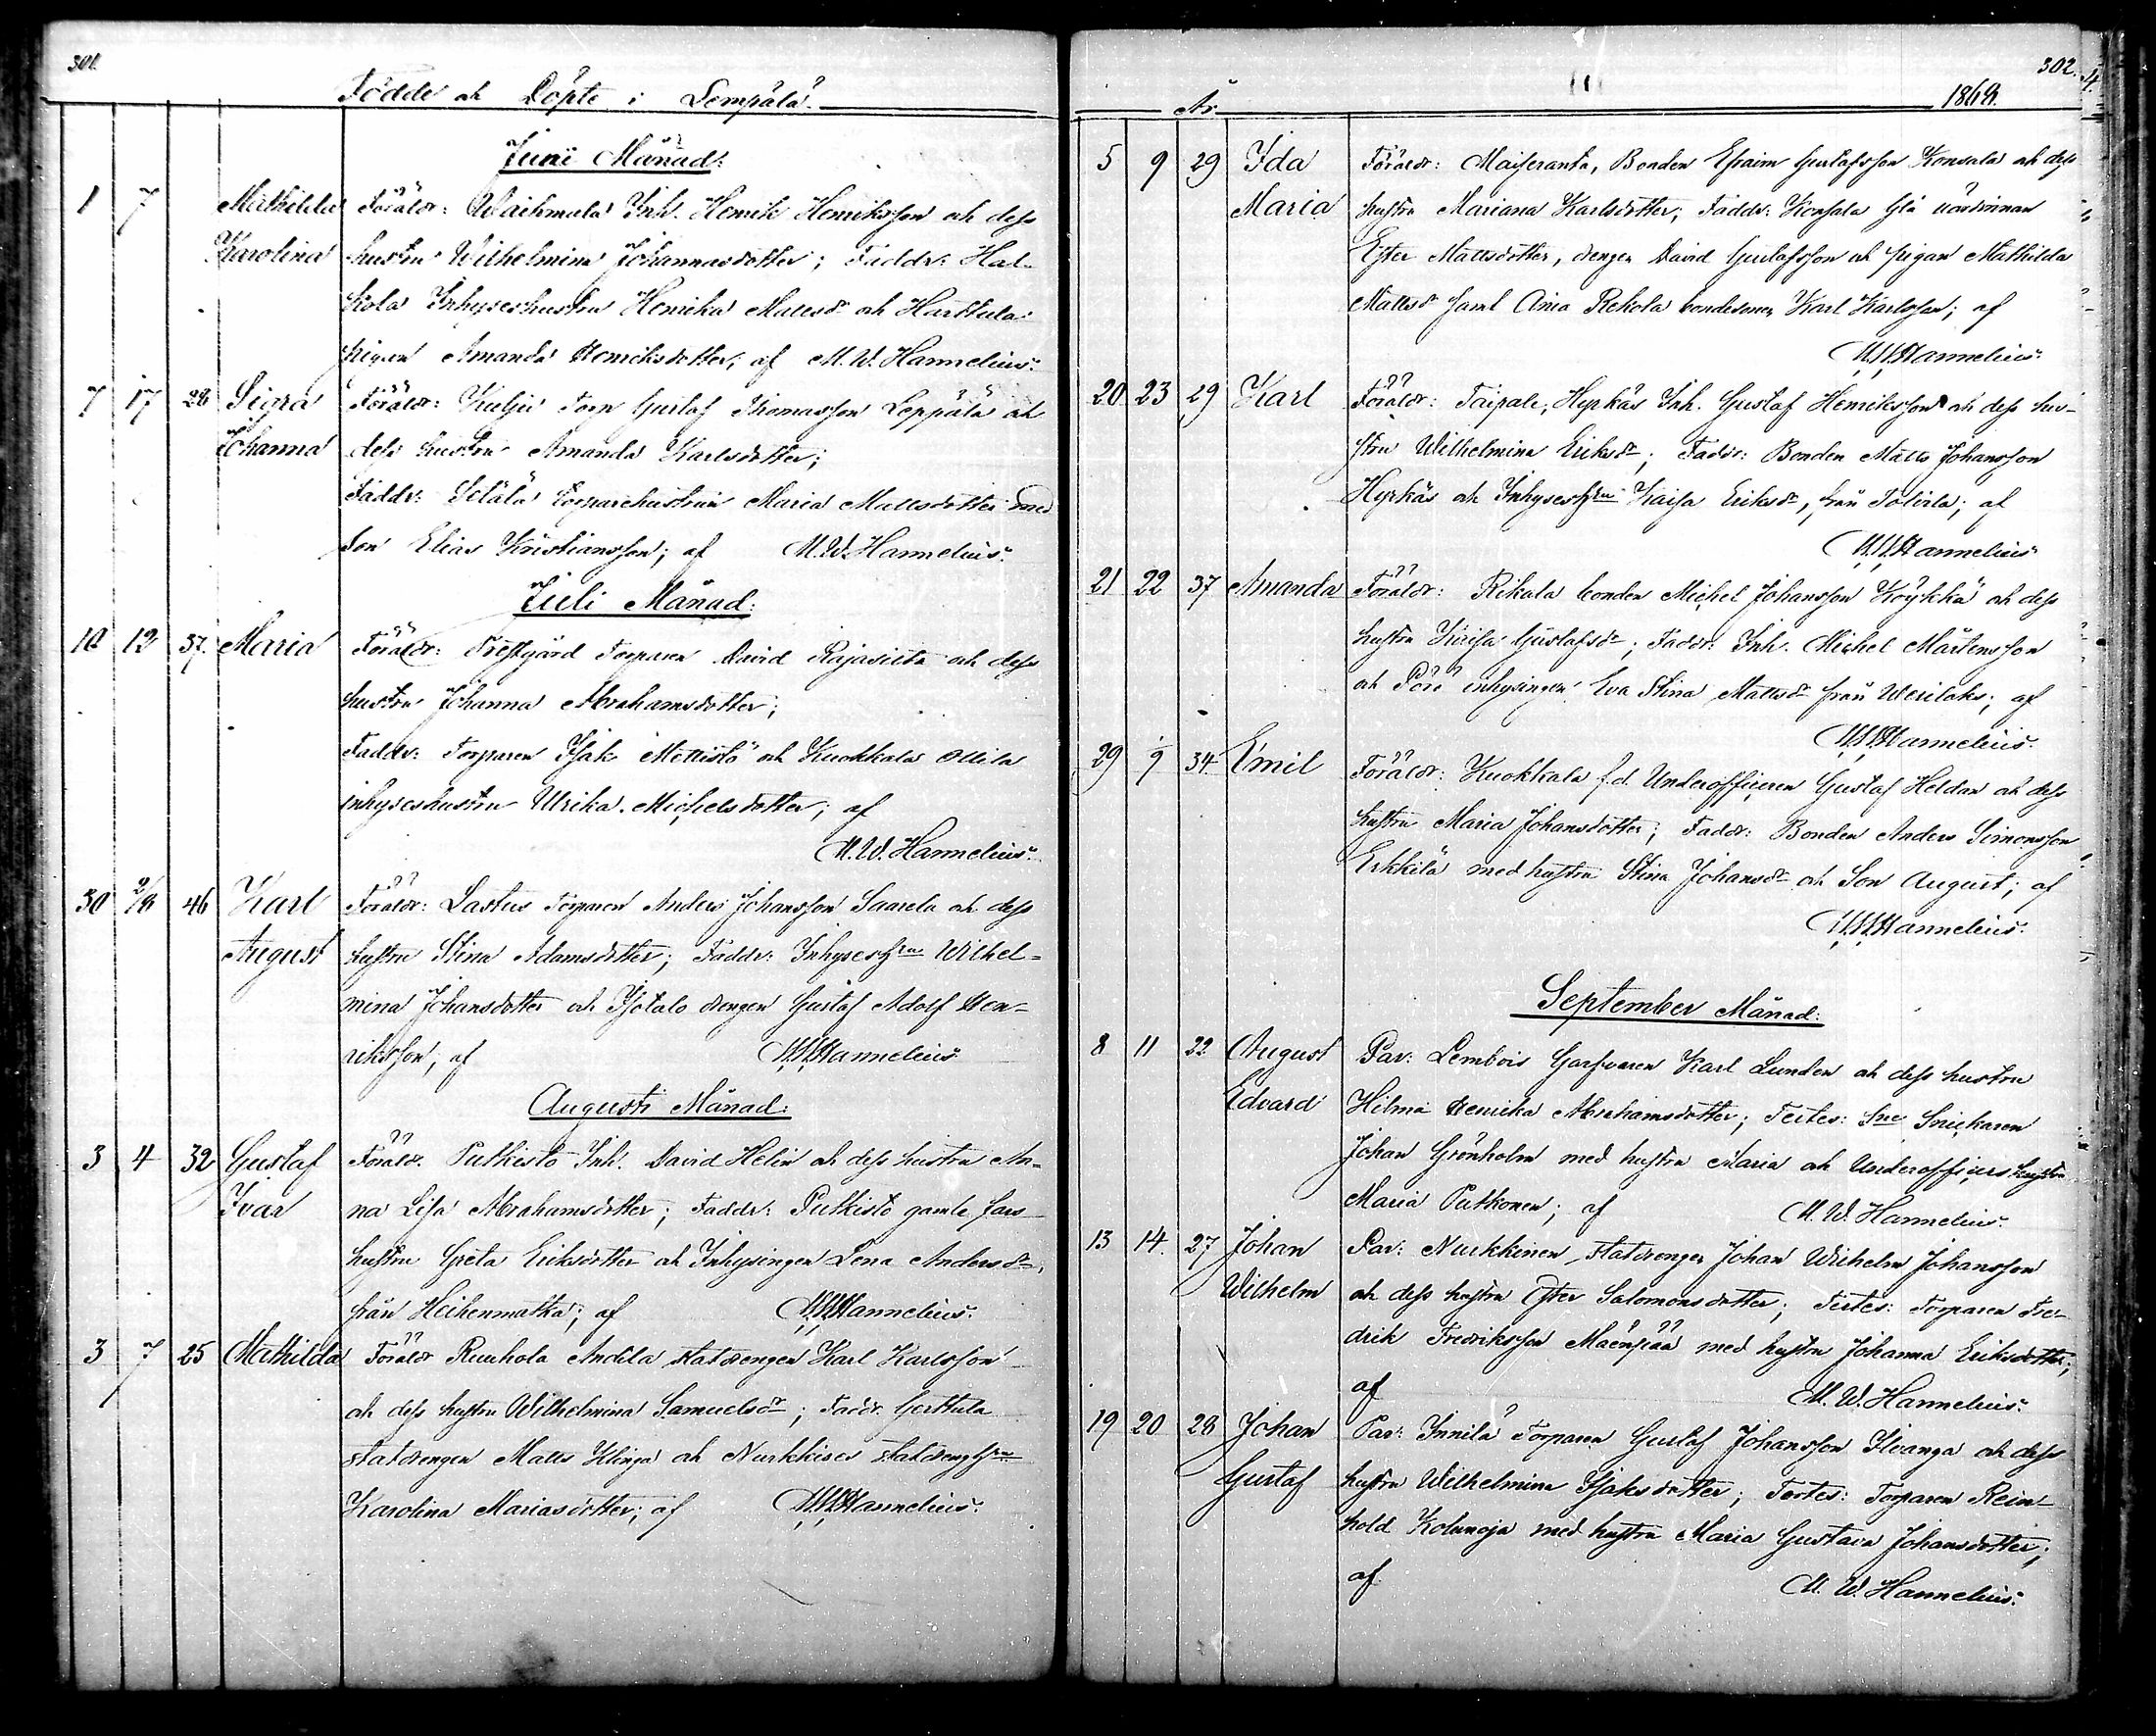 301.
Födde och Döpte i Lempälä
Juni Månad:
1 7 Mathilda Föräldr: Waihmala Inh. Henrik Henriksson och dess
Karolina hustru Wilhelmina Johannasdotter; Faddr: Hal-
kola Inhyseshustru Henrika Mattsdr och Harttula
pigan Amanda Henriksdotter; af M. W. Hannelius.
7 17 28 Sigra Föräldr: Kulju Torp Gustaf Thomasson Leppälä och
Johanna dess hustru Amanda Karlsdotter;
Faddr: Setälä torparehustrun Maria Mattsdotter med
son Elias Kristiansson; af M. W. Hannelius.
Juli Månad:
10 12 37. Maria Föräldr: Prestgård Torparen David Rajasiita och dess
hustru Johanna Abrahamsdotter;
Faddr: Torparen Isak Mettistö och Kuokkala Ollila
inhyseshustru Ulrika Michelsdotter; af
M. W. Hannelius.
30 2/8 46 Karl Föräldr: Lastus Torparen Anders Johansson Saarela och dess
August hustru Stina Adamsdotter; Faddr: Inhyseshru Wilhel-
mina Johansdotter och Isotalo drengen Gustaf Adolf Hen-
riksson; af M. W. Hannelius
Augusti Månad:
3 4 32 Gustaf Föräldr. Putkisto Inh. David Helin och dess hustru An-
Ivar na Lisa Abrahamsdotter; Faddr: Putkisto gamle fars
hustru Greta Eriksdotter och Inhysingen Lena Andersdr,
från Heikenmatka; af M. W. Hannelius.
3 7 25 Mathilda Föräldr Ruuhola Andila statdrengen Karl Karlsson
och dess hustru Wilhelmina Samuelsdr; Faddr. Gerttula
statdrengen Matts Klinga och Nurkkises statdrengshru
Karolina Mariasdotter; af M. W. Hannelius.
302.
År 1868.
5 9 29 Ida Föräldr: Maiseranta, Bonden Efraim Gustafsson Konsala och dess
Maria hustru Mariana Karlsdotter; Faddr: Konsala värdinnan
Ester Mattsdotter, dengen David Gustafsson och pigan Mathilda
Mattsdr samt Ania Rekola bondesonen Karl Karlsson; af
M. W. Hannelius.
20 23 29 Karl Föräldr: Taipale, Hyrkäs Inh. Gustaf Henriksson och dess hu-
stru Wilhelmina Eriksdr; Faddr: Bonden Matts Johansson
Hyrkäs och Inhyseshru Kaisa Eriksdr, från Tolvila; af
M. W. Hannelius
21 22 37 Amanda Föräldr: Rikala bonden Michel Johansson Köykkä och dess
hustru Kaisa Gustafsdr; Faddr: Inh. Michel Mårtensson
och inhysingen Eva Stina Mattsdr från Wesilaks; af
M. W. Hannelius.
29 9 34. Emil Föräldr: Kuokkala f.d. Underofficeren Gustaf Heldan och dess
hustru Maria Johansdotter; Faddr: Bonden Anders Simonsson
Erkkilä med hustru Stina Johansdr och Son August; af
M. W. Hannelius.
September Månad:
8 11 22 August Par: Lembois Garfvaren Karl Lunden och dess hustru
Edvard Hilma Henrika Abrahamsdotter; Testes: Snickaren
Johan Grönholm med hustru Maria och Underofficers hustru
Maria Putkonen; af M. W. Hannelius.
13 14. 27 Johan Par: Nurkkinen, statdrengen Johan Wilhelm Johansson
Wilhelm och dess hustru Ester Salomonsdotter; Testes: Torparen Fre-
drik Fredriksson Mäenpää med hustru Johanna Eriksdotter;
af M. W. Hannelius.
19 20 28 Johan Par: Innilä Torparen Gustaf Johansson Ilvanga och dess
Gustaf hustru Wilhelmina Isaksdotter; Testes: Torparen Rein-
hold Kolunoja med hustru Maria Gustava Johansdotter;
af M. W. Hannelius.